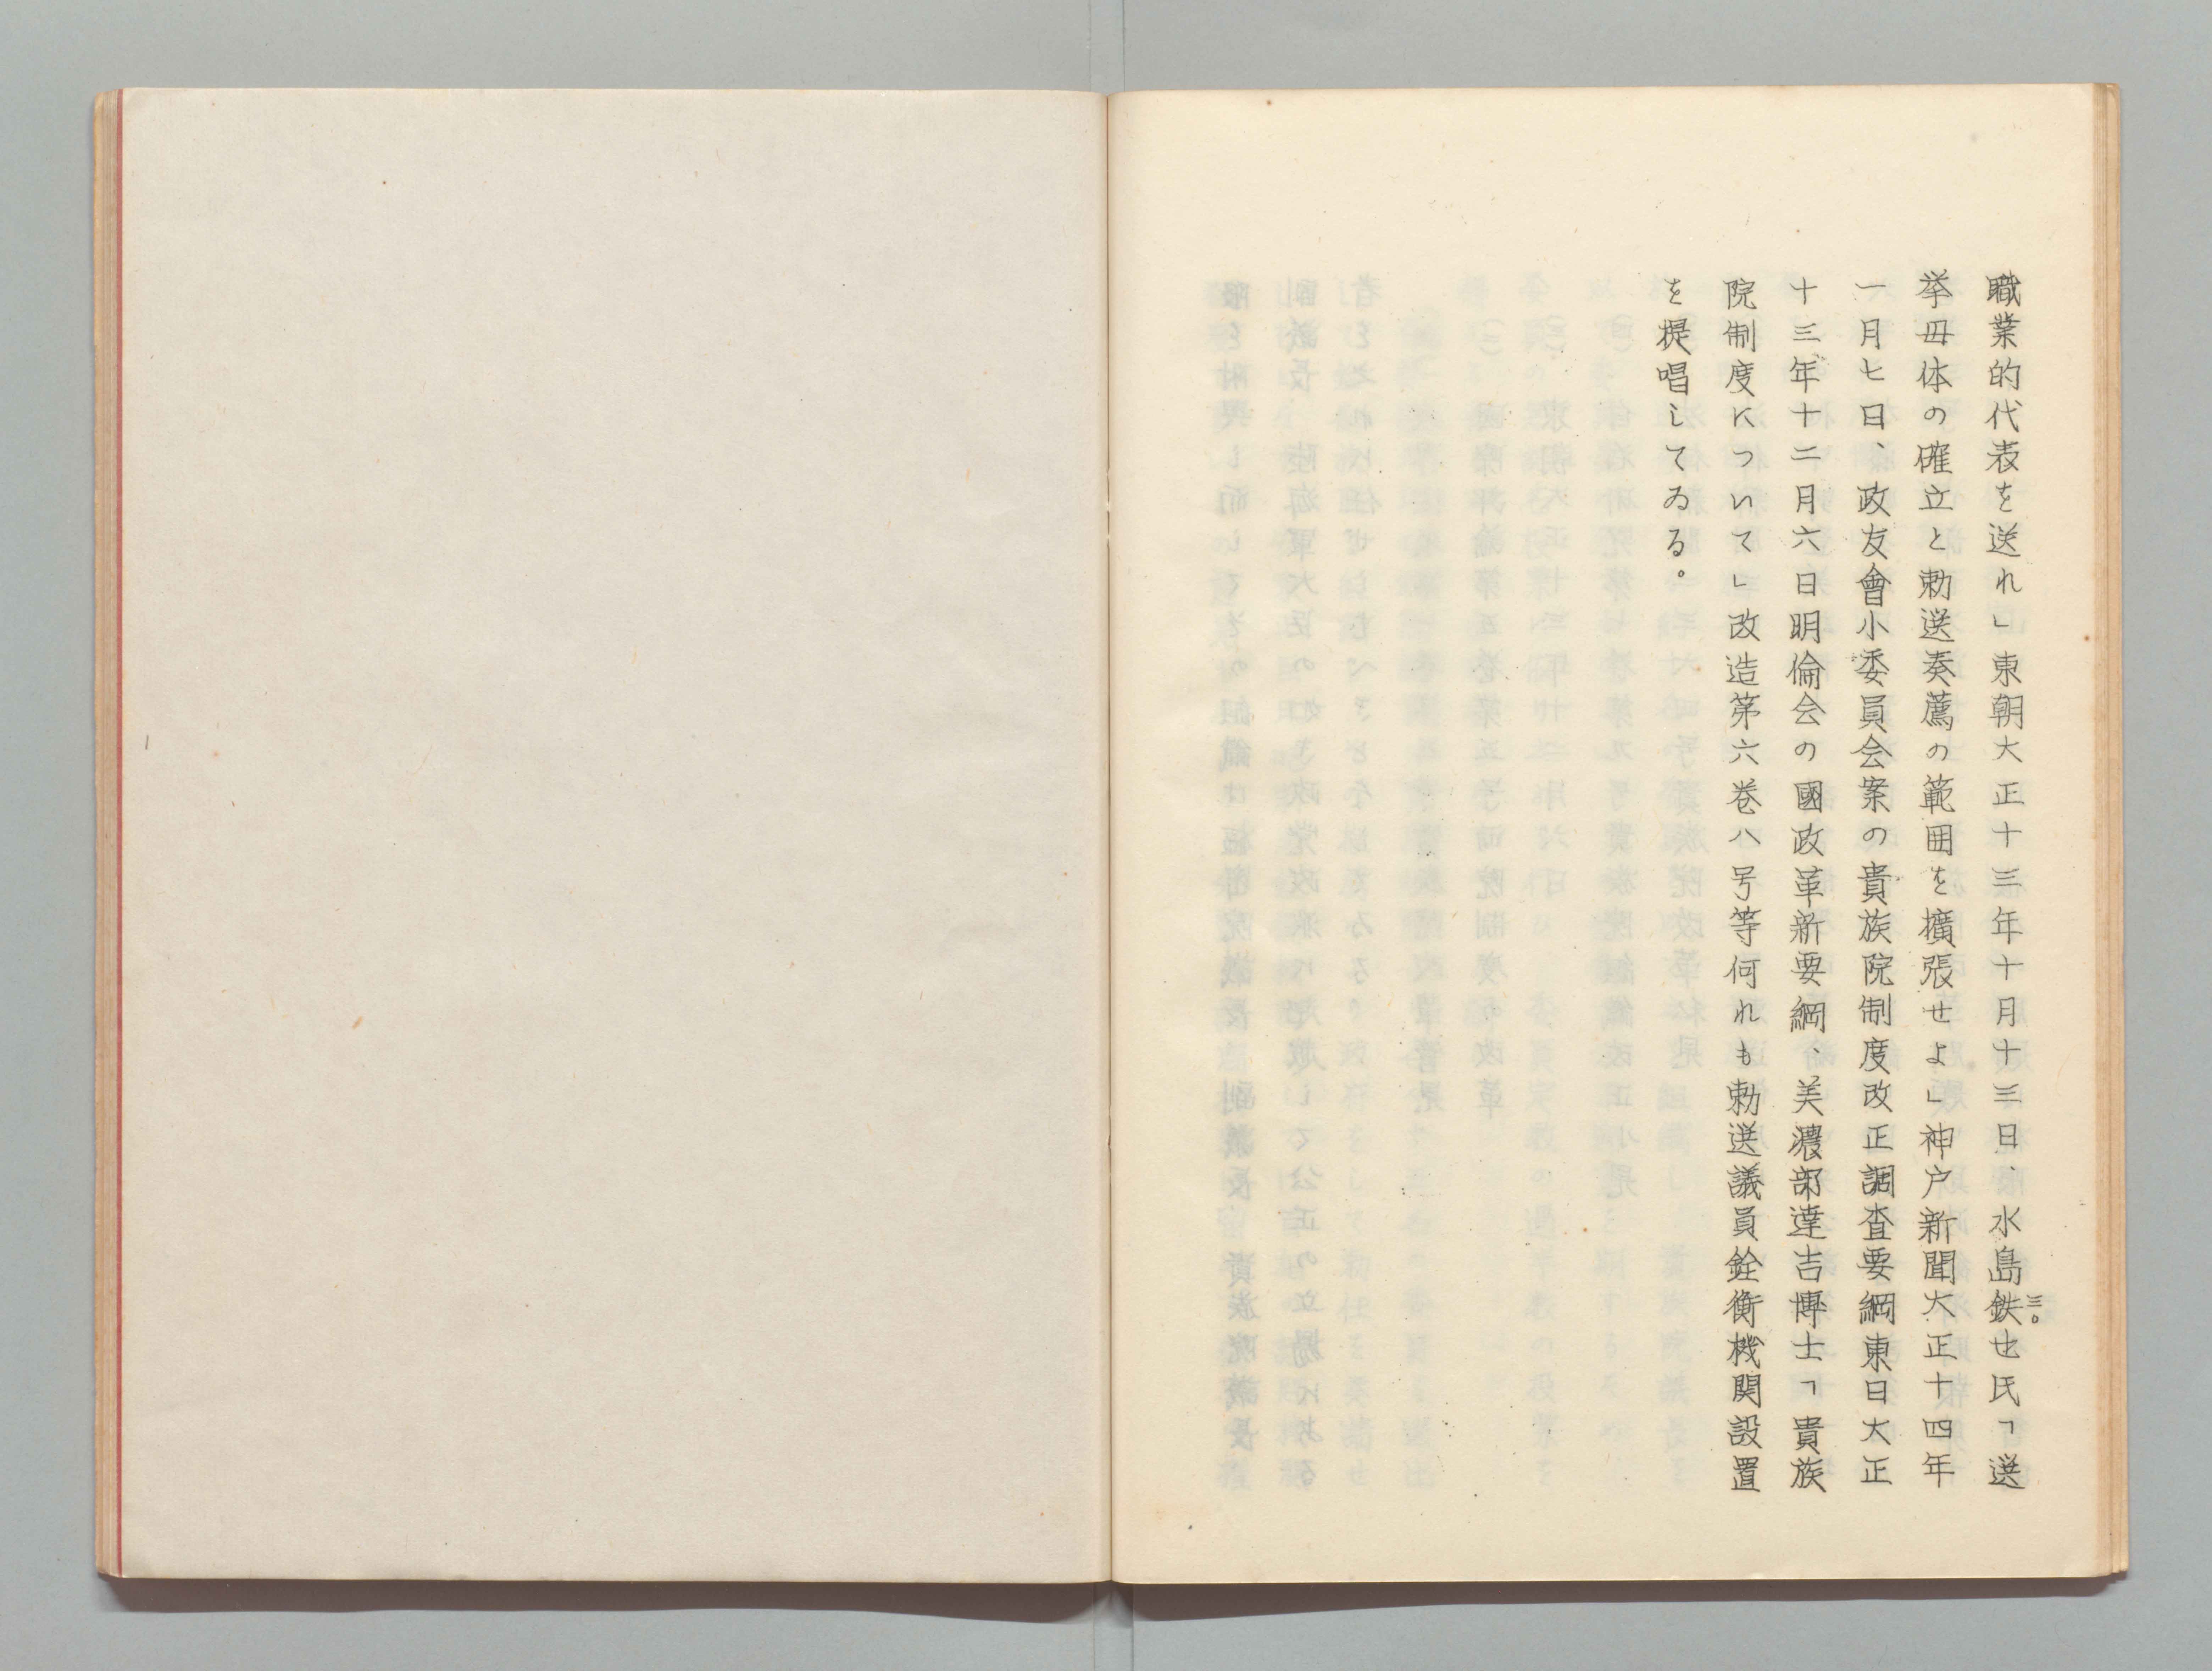 職業的代表を送れ」東朝大正十三年十月十三日、水島鉄也氏「選
挙母体の確立と勅選奏薦の範囲を擴張せよ」神戸新聞大正十四年
一月七日、政友會小委員会案の貴族院制度改正調査要綱東日大正
十三年十二月六日明倫会の國政革新要綱、美濃部達吉博士「貴族
院制度について」改造第六巻八号等何れも勅選議員銓衡機関設置
を提唱してゐる。